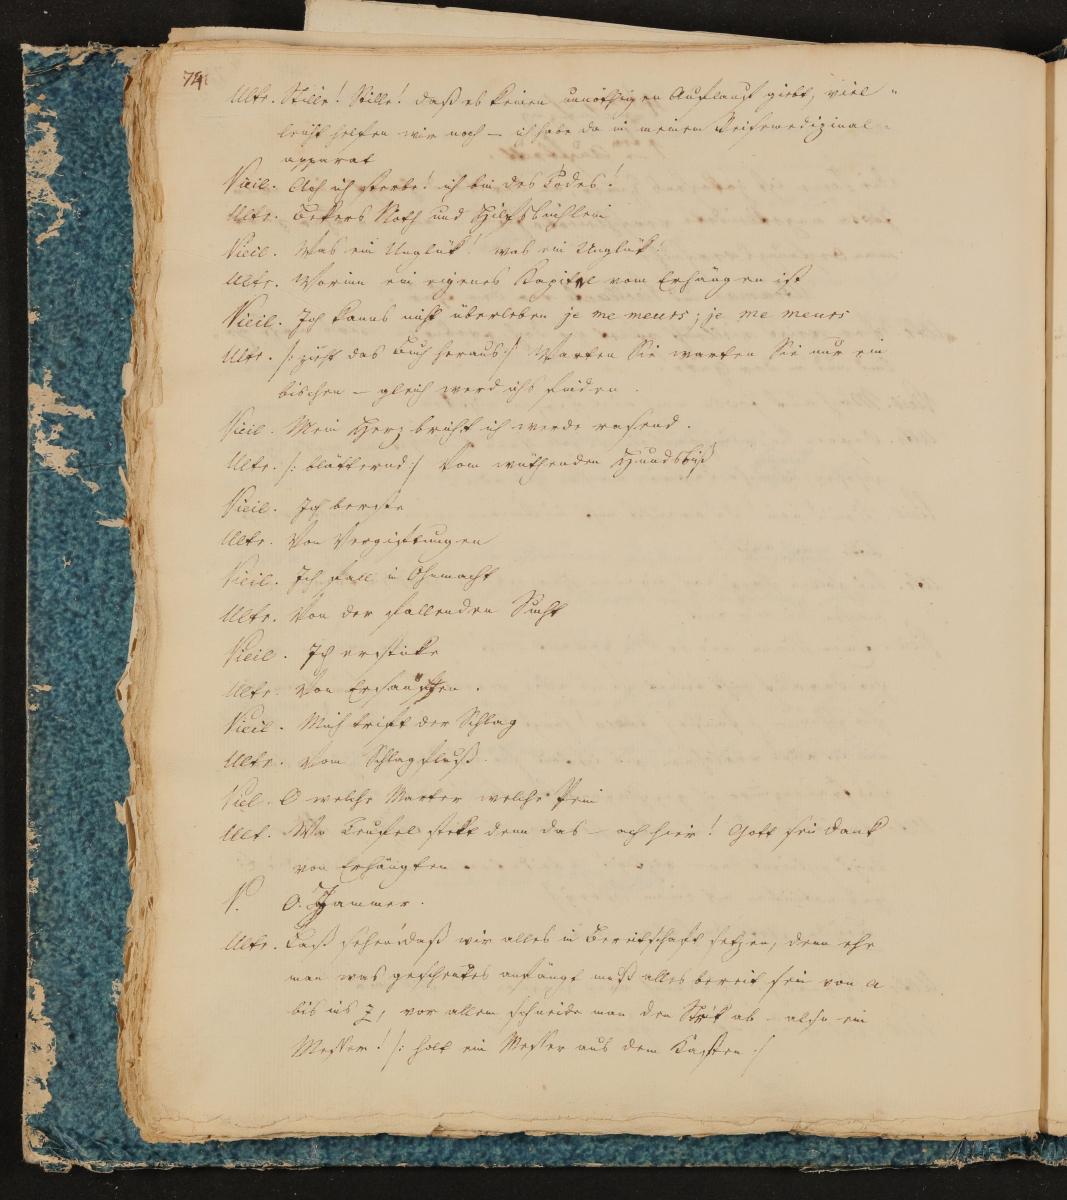 74.
Ultr. Stille! Stille! daß es keinen unnöthigen Auflauf giebt, viel-
leicht helfen wir noch – ich habe da in meinem Reisemedizinal-
apparat
Vieil. Ach ich sterbe! ich bin des Todes!
Ultr. Bekers Noth und Hilfsbüchlein
Vieil. Was ein Unglük! was ein Unglük!
Ultr. Worinn ein eigenes Kapitel vom Erhängen ist
Vieil. Ich kanns nicht überleben je me meurs; je me meurs
Ultr. /: zieht das Buch heraus :/ Warten Sie warten Sie nur ein
bischen – gleich werd ichs finden.
Vieil. Mein Herz bricht ich werde rasend.
Ultr. /: blätternd :/ Vom wüthenden Hundsbiß
Vieil. Ich berste
Ultr. Von Vergiftungen
Vieil. Ich fall in Ohnmacht
Ultr. Von der fallenden Sucht
Vieil. Ich ersticke
Ultr. Von Ersäuften.
Vieil. Mich trifft der Schlag
Ultr. Vom Schlagfluß.
Viel. O welche Marter welche Pein
Ult. Wo Teufel stekt denn das – ach hier! Gott sei Dank
von Erhängten
V. O. Jammer.
Ultr. Laß sehen daß wir alles in Bereitschaft setzen, denn ehe
man was gescheutes anfängt muß alles bereit sein von a
bis ins z, vor allem schneide man den Strik ab – also ein
Messer! /: holt ein Messer aus dem Kasten :/